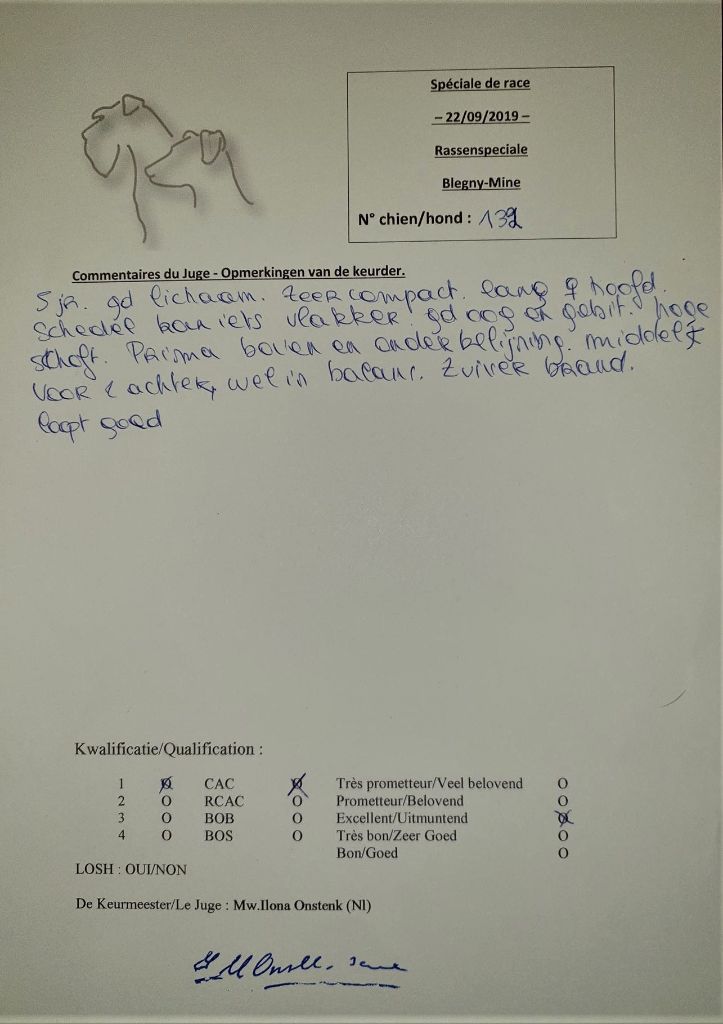 Spéciale de race
– 22/09/2019 –
Rassenspeciale
Blegny-Mine
N° chien/hond : 132
Commentaires du Juge - Opmerkingen van de keurder.
5 jr. gd lichaam. Zeer compact. lang ♀ hoofd.
Schedel kan iets vlakker. gd oog en gebit. hoge
schoft. Prima boven en onderbelijning. middel
voor & achter, wel in balans. Zuiver brand.
loopt goed
Kwalificatie/Qualification :
1 O CAC O Très prometteur/Veel belovend O
2 O RCAC O Prometteur/Belovend O
3 O BOB O Excellent/Uitmuntend O
4 O BOS O Très bon/Zeer Goed O
Bon/Goed O
LOSH : OUI/NON
De Keurmeester/Le Juge : Mw.Ilona Onstenk (Nl)